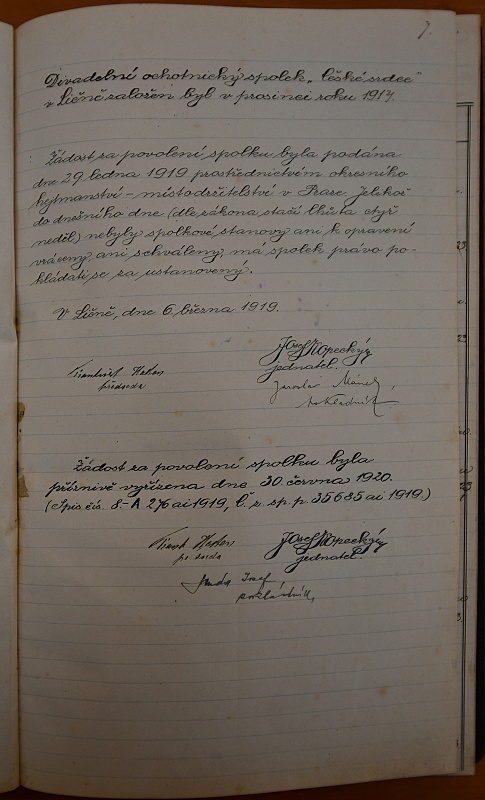 7.
Divadelní ochotnický spolek „České srdce“
v Líšně založen byl v prosinci roku 1917.
Žádost za povolení spolku byla podána
dne 29 ledna 1919 prostřednictvím okresního
hejtmanství – místodržitelství v Praze. Jelikož
do dnešního dne (dle zákona stačí lhůta čtyř
neděl) nebyly spolkové stanovy ani k opravení
vráceny, ani schváleny, má spolek právo po-
kládati se za ustanovený.
V Líšně, dne 6. března 1919.
Josef Kopecký
jednatel.
předseda
Jaroslav
pokladník
Žádost za povolení spolku byla
příznivě vyřízena dne 30 června 1920.
(Spis čís. 8-A 276 ai 1919, č. z. sp. p. 35685 ai 1919.)
Josef Kopecký
jednatel.
Josef
pokladník